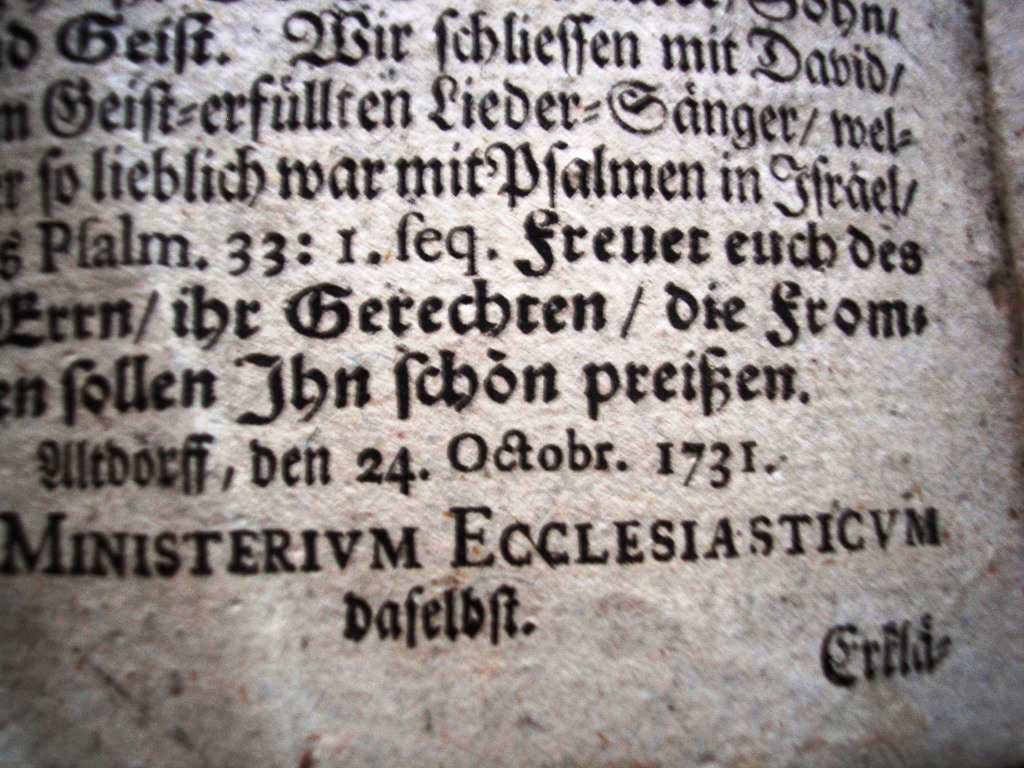 Sohn/
d Geiſt. Wir ſchlieſſen mit David/
n Geiſt-erfüllten Lieder-Sånger/ wel-
r ſo lieblich war mit Pſalmen in Iſrael/
s Pſalm. 33: 1. ſeq. Freuet euch des
Errn/ ihr Gerechten / die From-
en ſollen Ihn ſchön preiſzen.
Altdorff, den 24. Octobr. 1731.
MINISTERIVM ECCLESIASTICVM
daſelbſt.
Erklå-